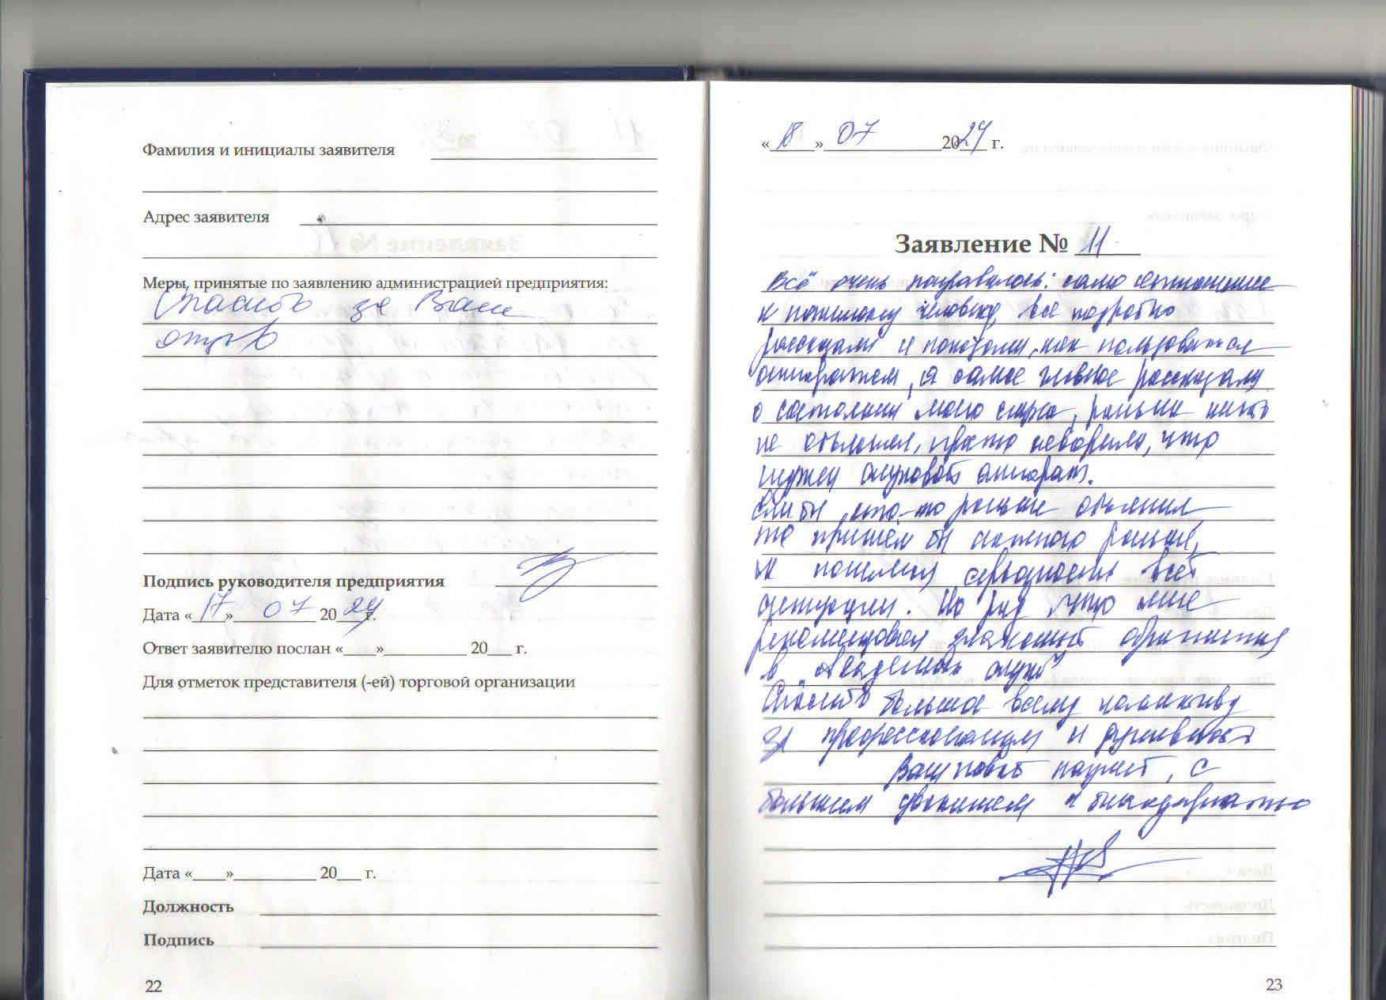 Фамилия и инициалы заявителя
Адрес заявителя
Меры, принятые по заявлению администрацией предприятия:
Спасибо за Ваш
отзыв
Подпись руководителя предприятия
Дата «17» 07 2024 г.
Ответ заявителю послан «___»_________ 20___ г.
Для отметок представителя (-ей) торговой организации
Дата «___»_________ 20___ г.
Должность
Подпись
22
«18» 07 2024 г.
Заявление № 11
Всё очень понравилось: само отношение
к пожилому человеку, все подробно
рассказали и показали, как пользоваться
аппаратом, а самое главное рассказали
о состоянии моего слуха, раньше никто
не объяснял, просто говорили, что
нужен слуховой аппарат.
Если бы кто-то раньше объяснил
то пришёл бы намного раньше,
и понимал серьезность всей
ситуации. Но рад, что мне
рекомендовал знакомый обратиться
в "Академик слуха"
Спасибо большое всему коллективу
за профессионализм и душевность
Ваш новый пациент, с
большим уважением и благодарностью
23